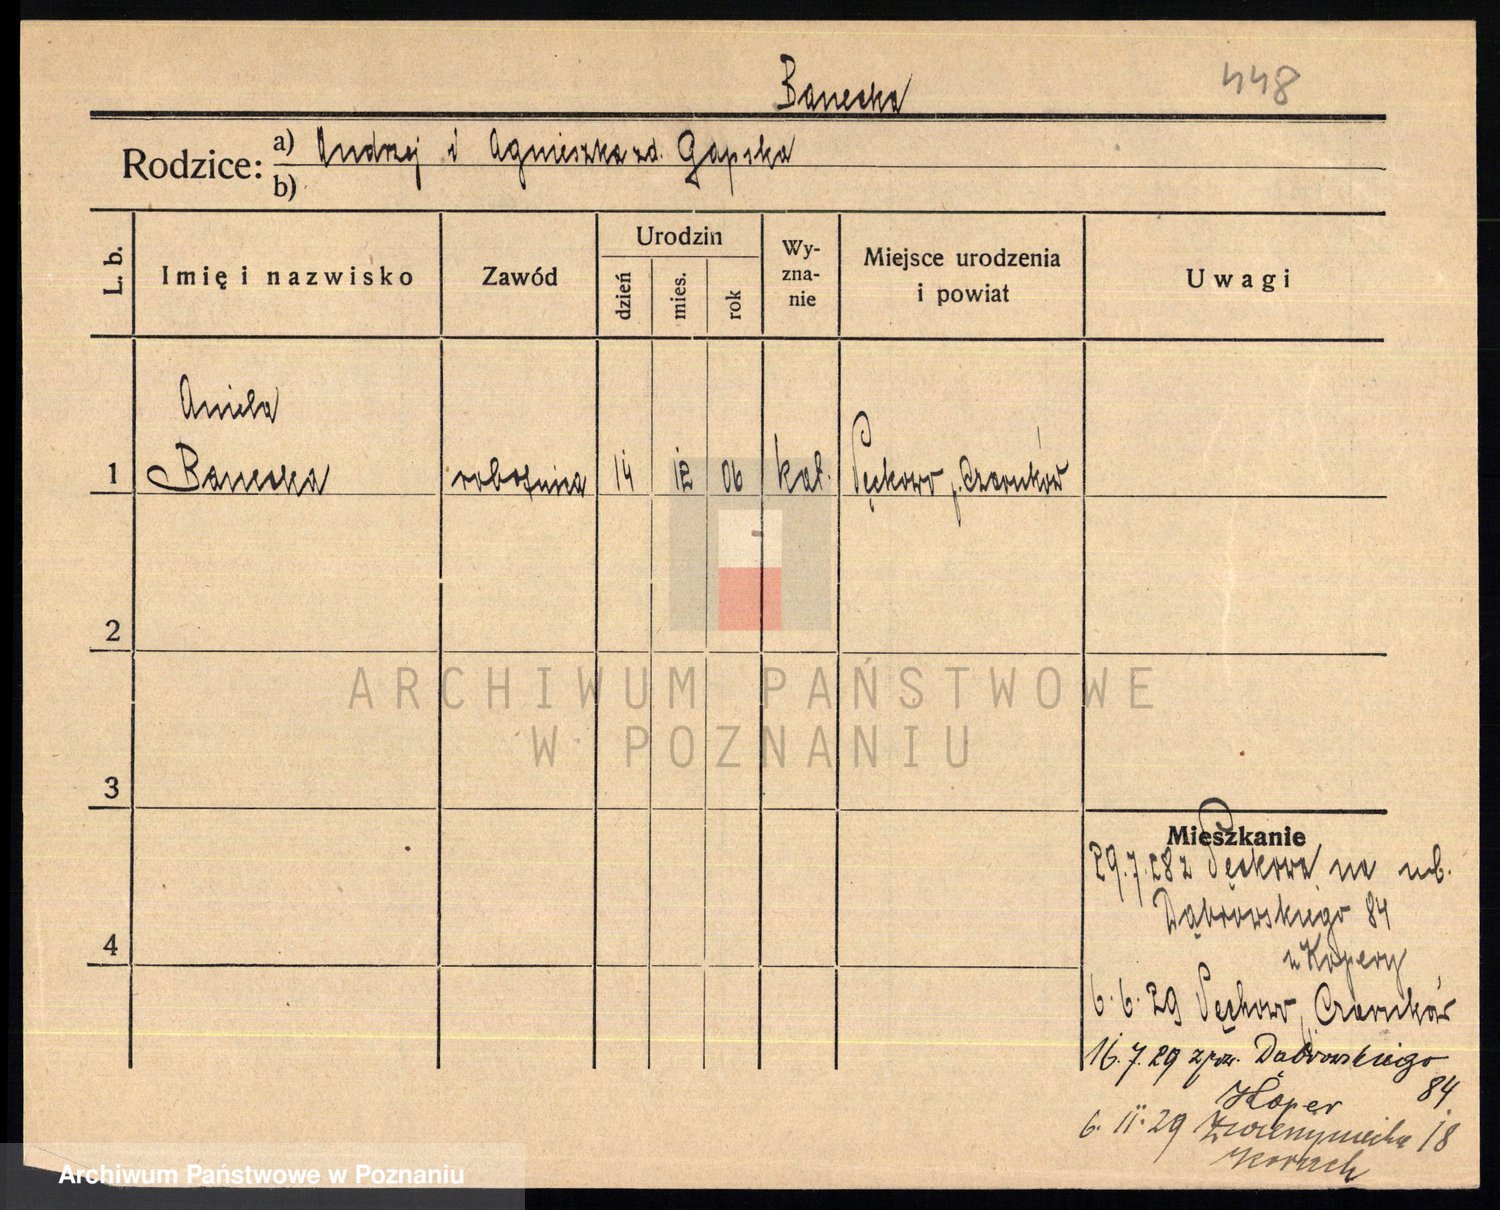 Banecka
448
Rodzice: a) Andrzej i Agnieszka zd. Gapska
b)
L. b.
Imię i nazwisko
Zawód
Urodzin
dzień
mies.
rok
Wy-
zna-
nie
Miejsce urodzenia
i powiat
Uwagi
Aniela
1 Banecka robotnica 14 12 06 kat. Pęckowo p. Czarnków
2
ARCHIWUM PAŃSTWOWE
W POZNANIU
3
4
Mieszkanie
29.7.28 z Pęckowa na ul.
Dąbrowskiego 84
u Kopery
6.6.29 Pęckowo, Czarnków
16.7.29 z pow. Dąbrowskiego
84
Koper
6.11.29 Zwierzyniecka 18
Archiwum Państwowe w Poznaniu